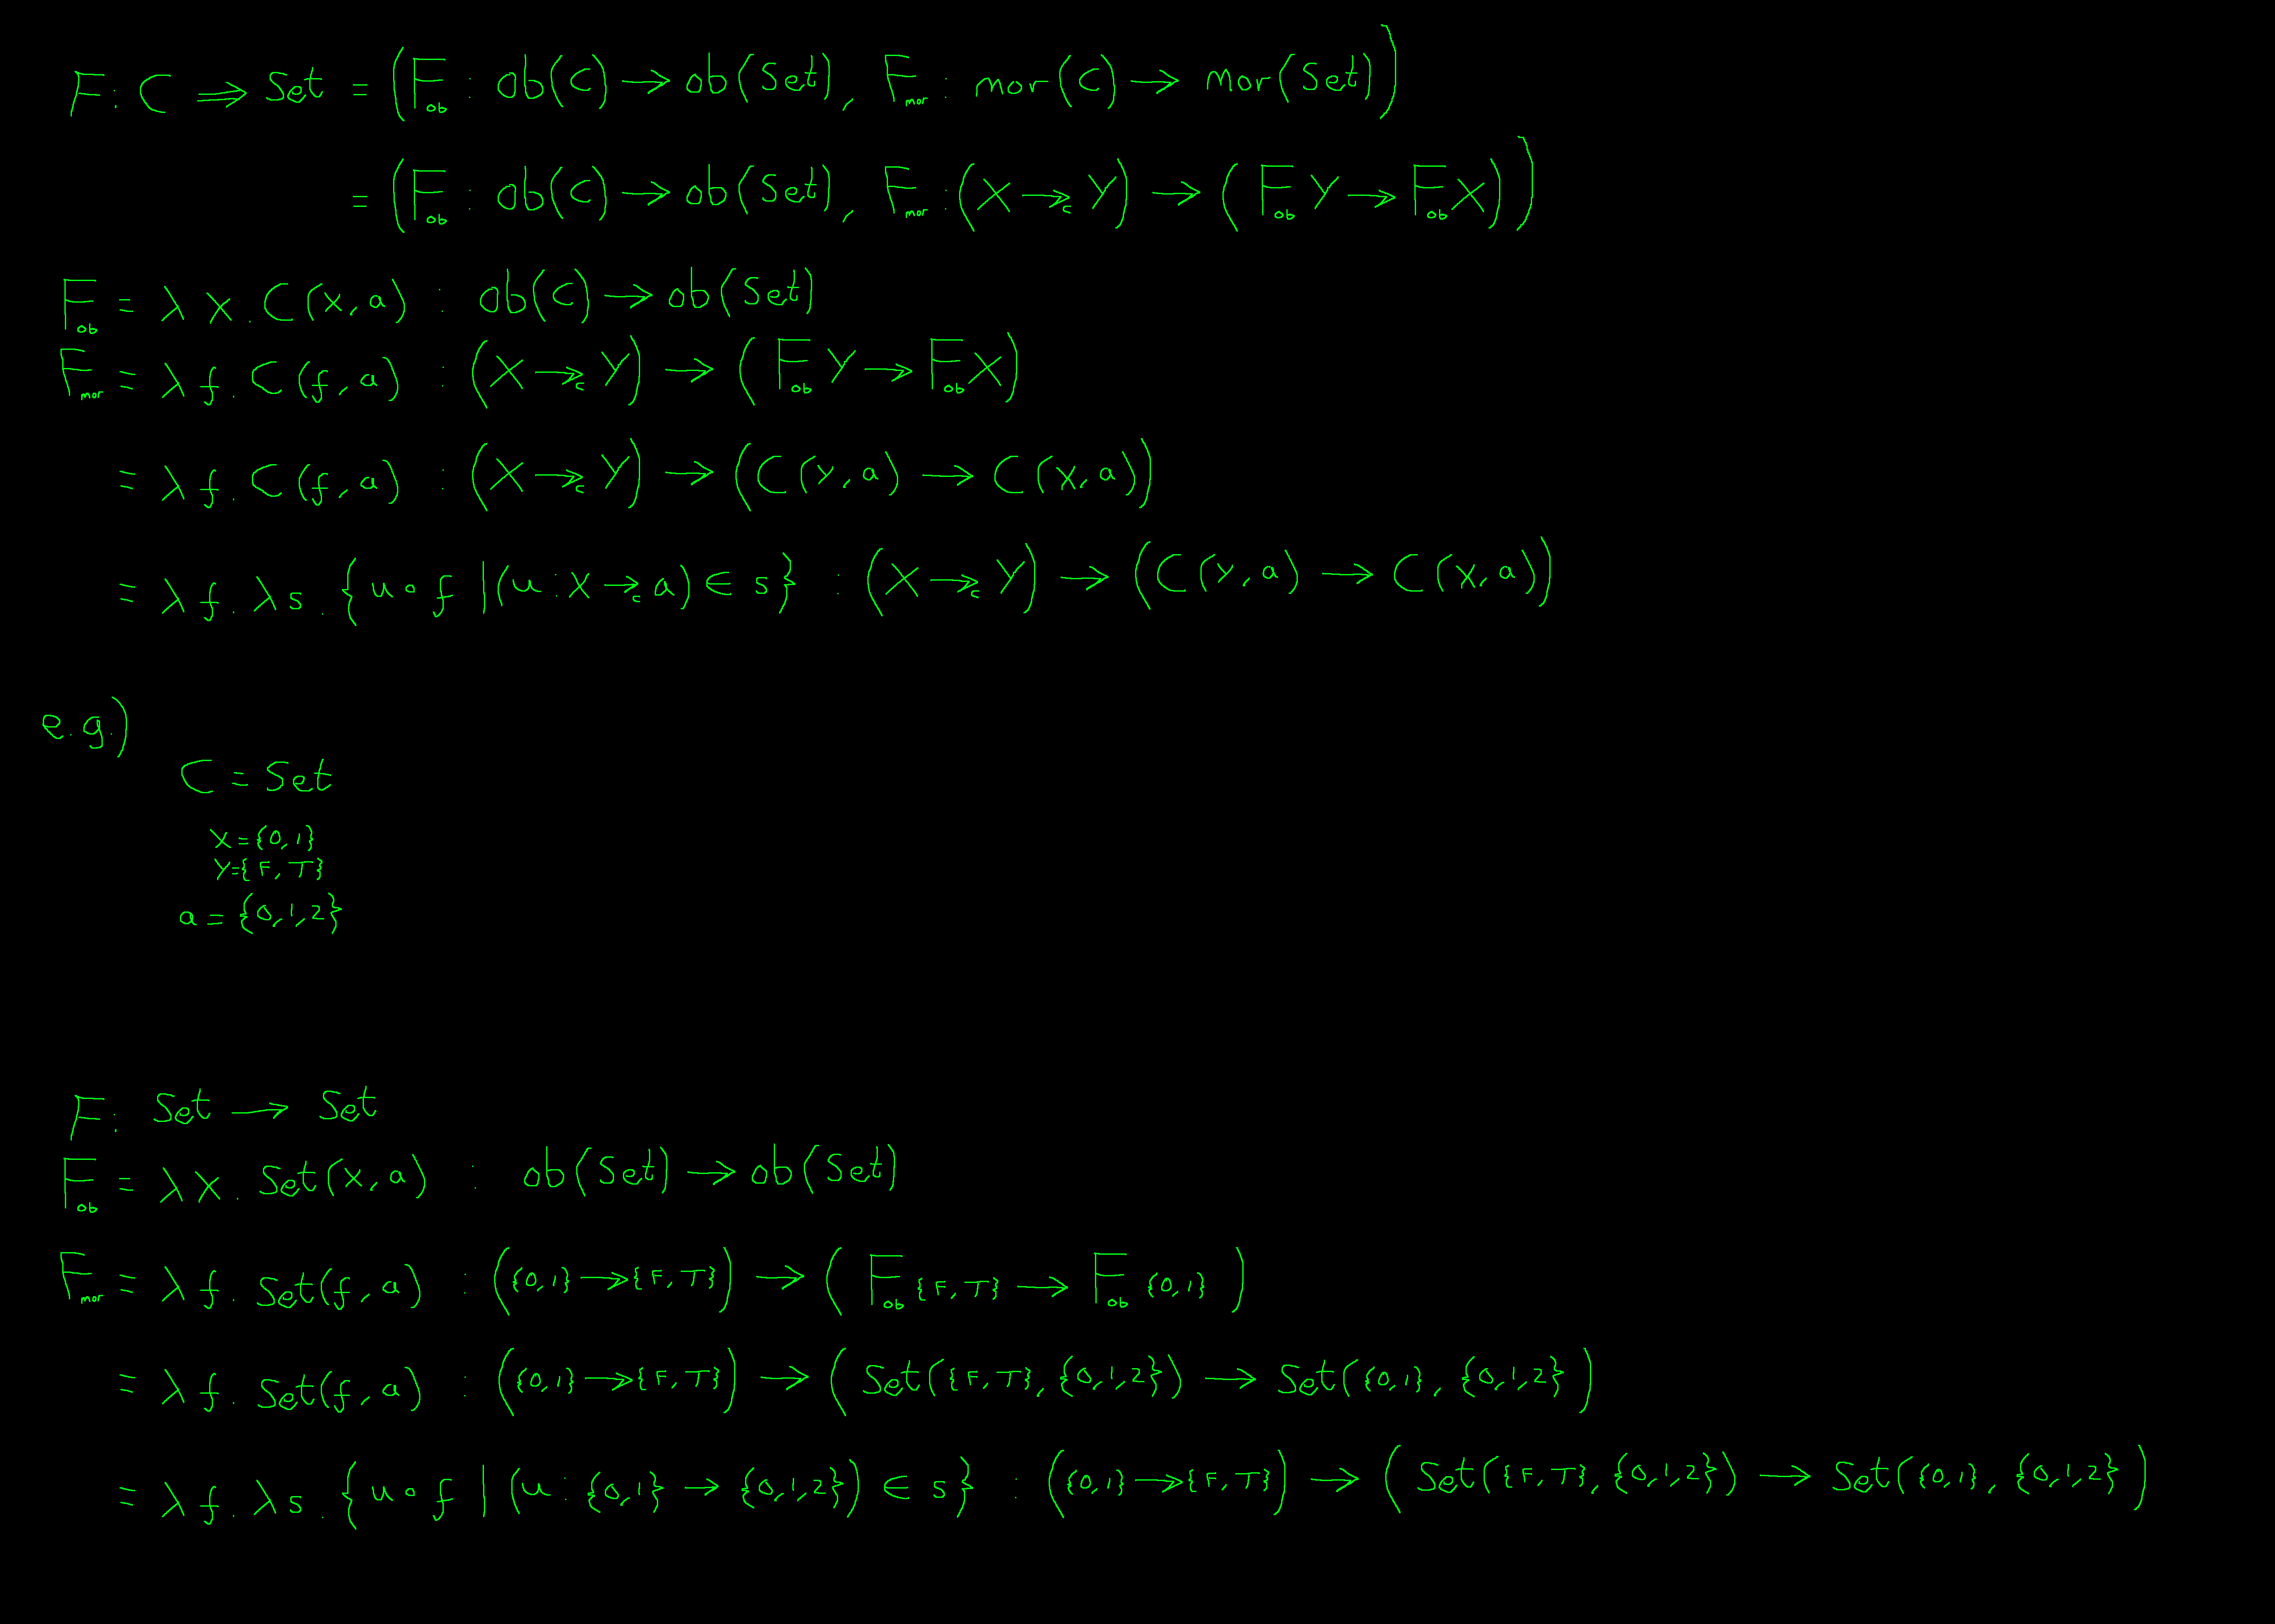 F: C ⟹ Set = (F_ob : ob(C) → ob(Set), F_mor : mor(C) → mor(Set))
= (F_ob : ob(C) → ob(Set), F_mor : (X →_c Y) → (F_ob Y → F_ob X))
F_ob = λ X. C(X, a) : ob(C) → ob(Set)
F_mor = λ f. C(f, a) : (X →_c Y) → (F_ob Y → F_ob X)
= λ f. C(f, a) : (X →_c Y) → (C(Y, a) → C(X, a))
= λ f. λ s. {u ∘ f | (u : X →_c a) ∈ s} : (X →_c Y) → (C(Y, a) → C(X, a))
e.g.)
C = Set
X = {0, 1}
Y = {F, T}
a = {0, 1, 2}
F: Set → Set
F_ob = λ X. Set(X, a) : ob(Set) → ob(Set)
F_mor = λ f. Set(f, a) : ({0, 1} → {F, T}) → (F_ob {F, T} → F_ob {0, 1})
= λ f. Set(f, a) : ({0, 1} → {F, T}) → (Set({F, T}, {0, 1, 2}) → Set({0, 1}, {0, 1, 2})
= λ f. λ s. {u ∘ f | (u : {0, 1} → {0, 1, 2}) ∈ s} : ({0, 1} → {F, T}) → (Set({F, T}, {0, 1, 2}) → Set({0, 1}, {0, 1, 2})